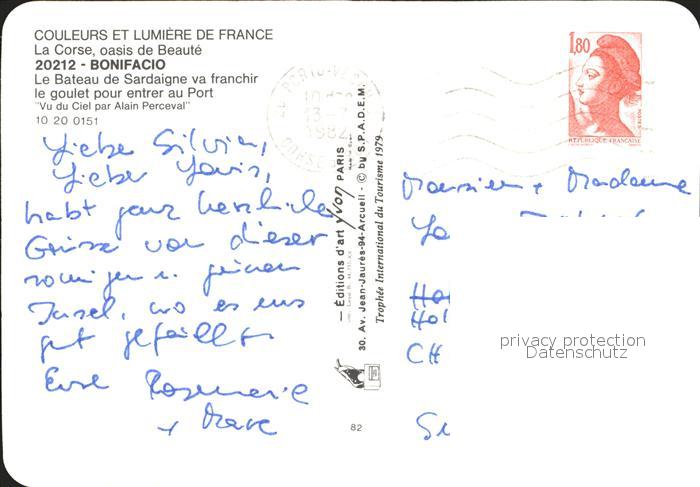 COULEURS ET LUMIÈRE DE FRANCE
La Corse, oasis de Beauté
20212 - BONIFACIO
Le Bateau de Sardaigne va franchir
le goulet pour entrer au Port
"Vu du Ciel par Alain Perceval"
10 20 0151
Lieber Silvin,
Lieber Louis,
habt ganz herzliche
Grüsse von dieser
sonnigen u. grünen
Insel, wo es uns
gut gefällt
Eure Rosmarie
+ Marc
PORTO-VECCHIO
1982
CORSE
— Éditions d'art yvon PARIS
30. Av. Jean-Jaurès-94-Arcueil - © by S.P.A.D.E.M.
Trophée International du Tourisme 1979
82
1,80
REPUBLIQUE FRANCAISE
Monsieur + Madame
CH
privacy protection
Datenschutz